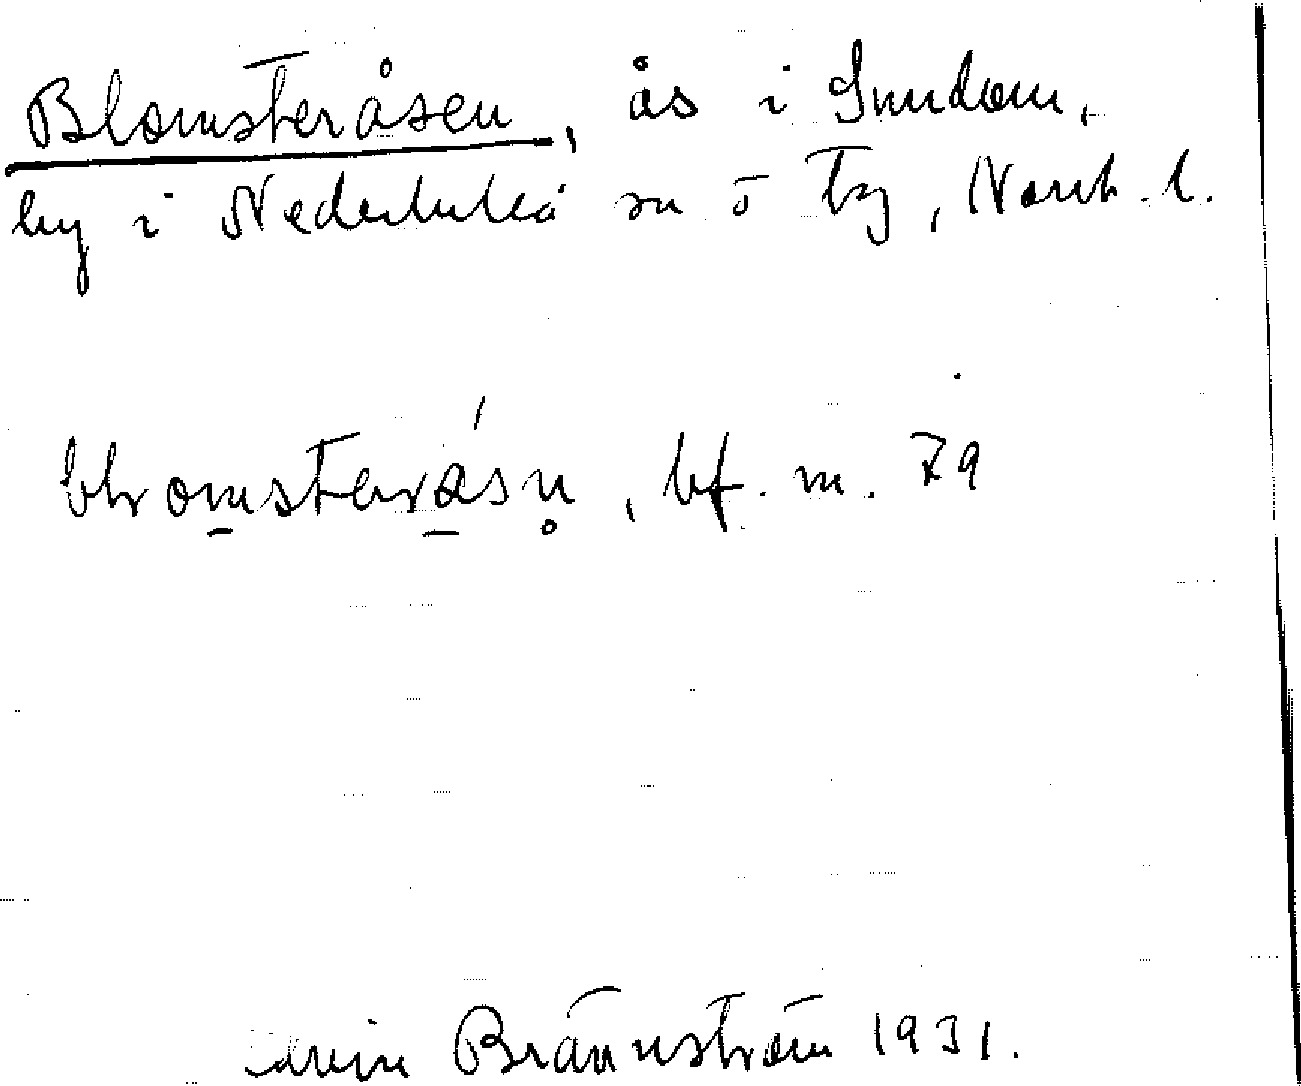 Blomsteråsen, ås i Smedom,
by i Nederluleå sn ö Tg, Norrb. l.
blromsterásn, bf. m. 79
Edvin Brännström 1931.